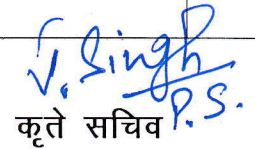 V. Singh
P.S.
कृते सचिव